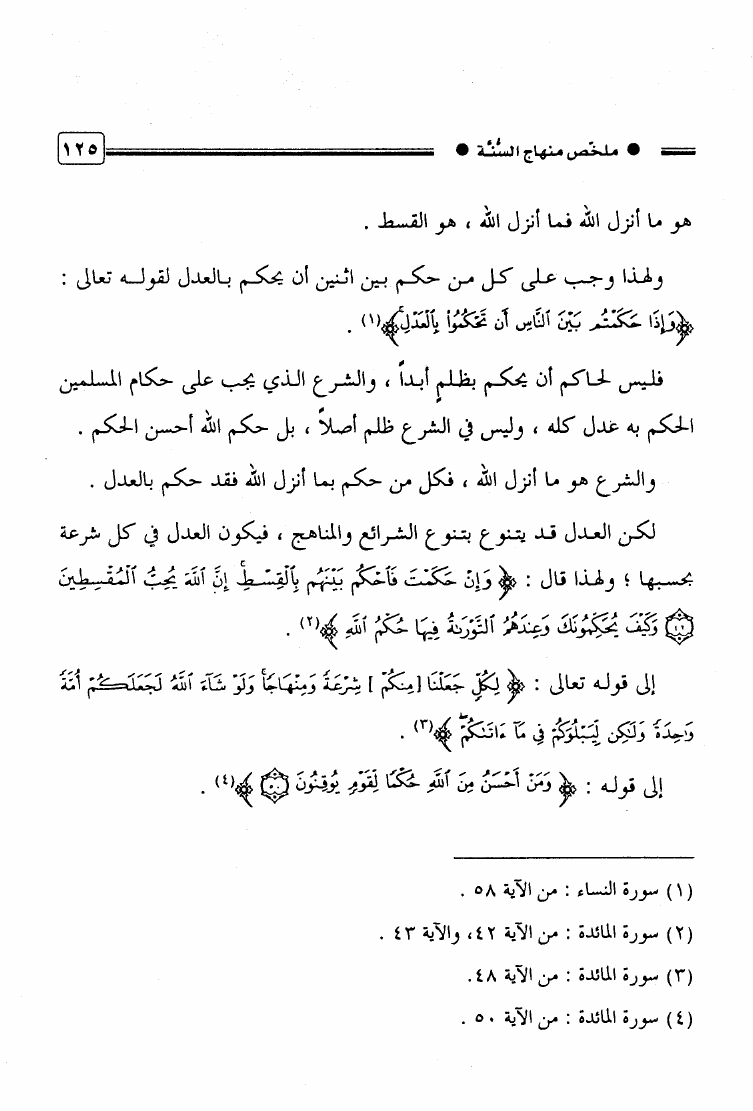 ● ملخّص منهاج السُّنَّة ● ١٢٥
هو ما أنزل الله فما أنزل الله ، هو القسط .
ولهذا وجب على كل من حكم بين اثنين أن يحكم بالعدل لقوله تعالى :
﴿وَإِذَا حَكَمْتُم بَيْنَ ٱلنَّاسِ أَن تَحْكُمُوا۟ بِٱلْعَدْلِ﴾(١) .
فليس لحاكم أن يحكم بظلمٍ أبداً ، والشرع الذي يجب على حكام المسلمين
الحكم به عدل كله ، وليس في الشرع ظلم أصلاً ، بل حكم الله أحسن الحكم .
والشرع هو ما أنزل الله ، فكل من حكم بما أنزل الله فقد حكم بالعدل .
لكن العدل قد يتنوع بتنوع الشرائع والمناهج ، فيكون العدل في كل شرعة
بحسبها ؛ ولهذا قال : ﴿ وَإِنْ حَكَمْتَ فَٱحْكُم بَيْنَهُم بِٱلْقِسْطِ إِنَّ ٱللَّهَ يُحِبُّ ٱلْمُقْسِطِينَ
٤٢ وَكَيْفَ يُحَكِّمُونَكَ وَعِندَهُمُ ٱلتَّوْرَىٰةُ فِيهَا حُكْمُ ٱللَّهِ ﴾(٢) .
إلى قوله تعالى : ﴿ لِكُلٍّ جَعَلْنَا [مِنكُمْ ] شِرْعَةً وَمِنْهَاجًا وَلَوْ شَآءَ ٱللَّهُ لَجَعَلَكُمْ أُمَّةً
وَٰحِدَةً وَلَٰكِن لِّيَبْلُوَكُمْ فِى مَآ ءَاتَىٰكُمْ ﴾(٣) .
إلى قوله : ﴿ وَمَنْ أَحْسَنُ مِنَ ٱللَّهِ حُكْمًا لِّقَوْمٍ يُوقِنُونَ ٥٠ ﴾(٤) .
(١) سورة النساء : من الآية ٥٨ .
(٢) سورة المائدة : من الآية ٤٢، والآية ٤٣ .
(٣) سورة المائدة : من الآية ٤٨.
(٤) سورة المائدة : من الآية ٥٠ .